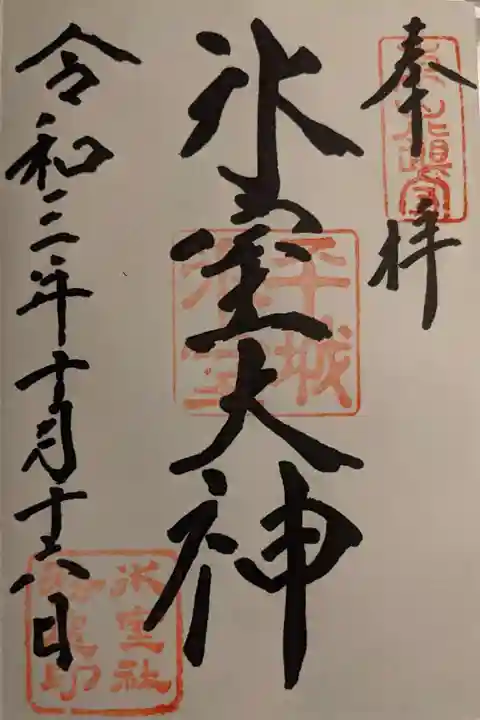 奉拝
氷室大神
平城
氷室
令和三年十月十六日
氷室社